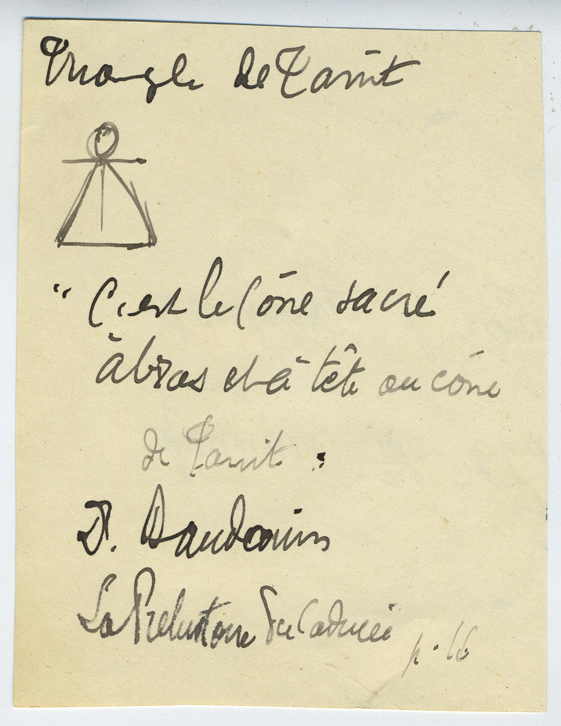 Triangle de Tanit
" C'est le Cône sacré
à bras et à tête ou cône
de Tanit :
D. Baudouin
La Préhistoire du Caducée p. 16